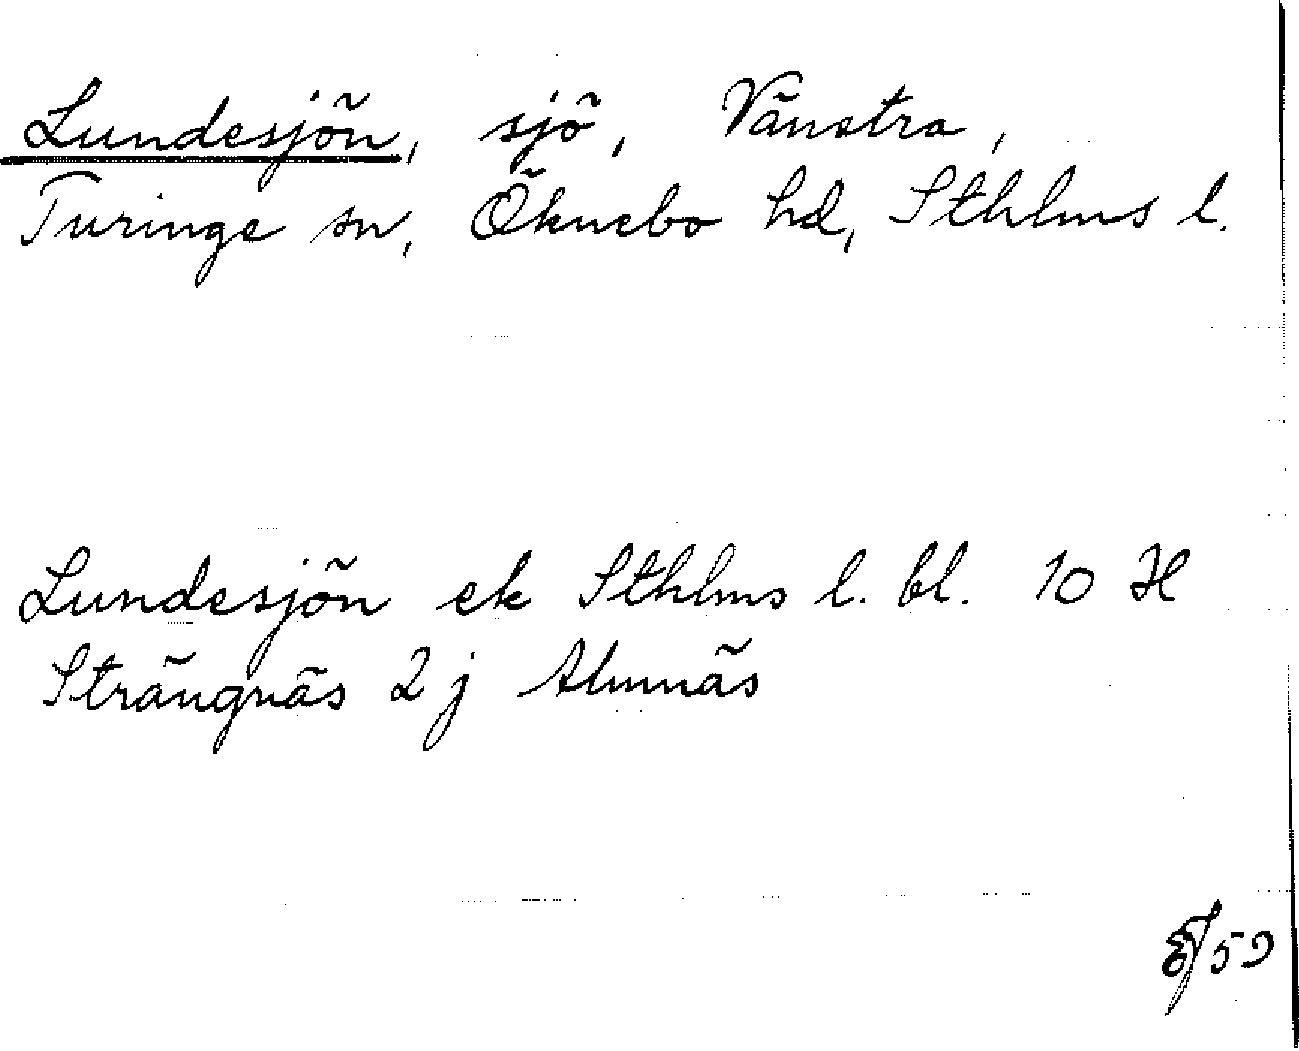 Lundesjön, sjö, Vänstra,
Turinge sn, Öknebo hd, Sthlms l.
Lundesjön ek Sthlms l. bl. 10 H
Strängnäs 2 j Almnäs
/59